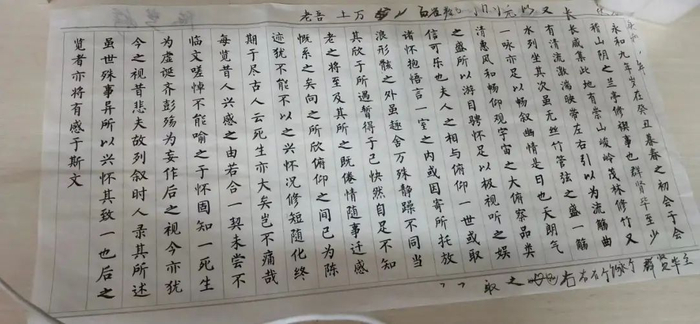 永和九年岁在癸丑暮春之初会于会
稽山阴之兰亭修禊事也群贤毕至少
长咸集此地有崇山峻岭茂林修竹又
有清流激湍映带左右引以为流觞曲
水列坐其次虽无丝竹管弦之盛一觞
一咏亦足以畅叙幽情是日也天朗气
清惠风和畅仰观宇宙之大俯察品类
之盛所以游目骋怀足以极视听之娱
信可乐也夫人之相与俯仰一世或取
诸怀抱悟言一室之内或因寄所托放
浪形骸之外虽趣舍万殊静躁不同当
其欣于所遇暂得于己快然自足不知
老之将至及其所之既倦情随事迁感
慨系之矣向之所欣俯仰之间已为陈
迹犹不能不以之兴怀况修短随化终
期于尽古人云死生亦大矣岂不痛哉
每览昔人兴感之由若合一契未尝不
临文嗟悼不能喻之于怀固知一死生
为虚诞齐彭殇为妄作后之视今亦犹
今之视昔悲夫故列叙时人录其所述
虽世殊事异所以兴怀其致一也后之
览者亦将有感于斯文
老吾 上万
又 长
取之
群贤毕至